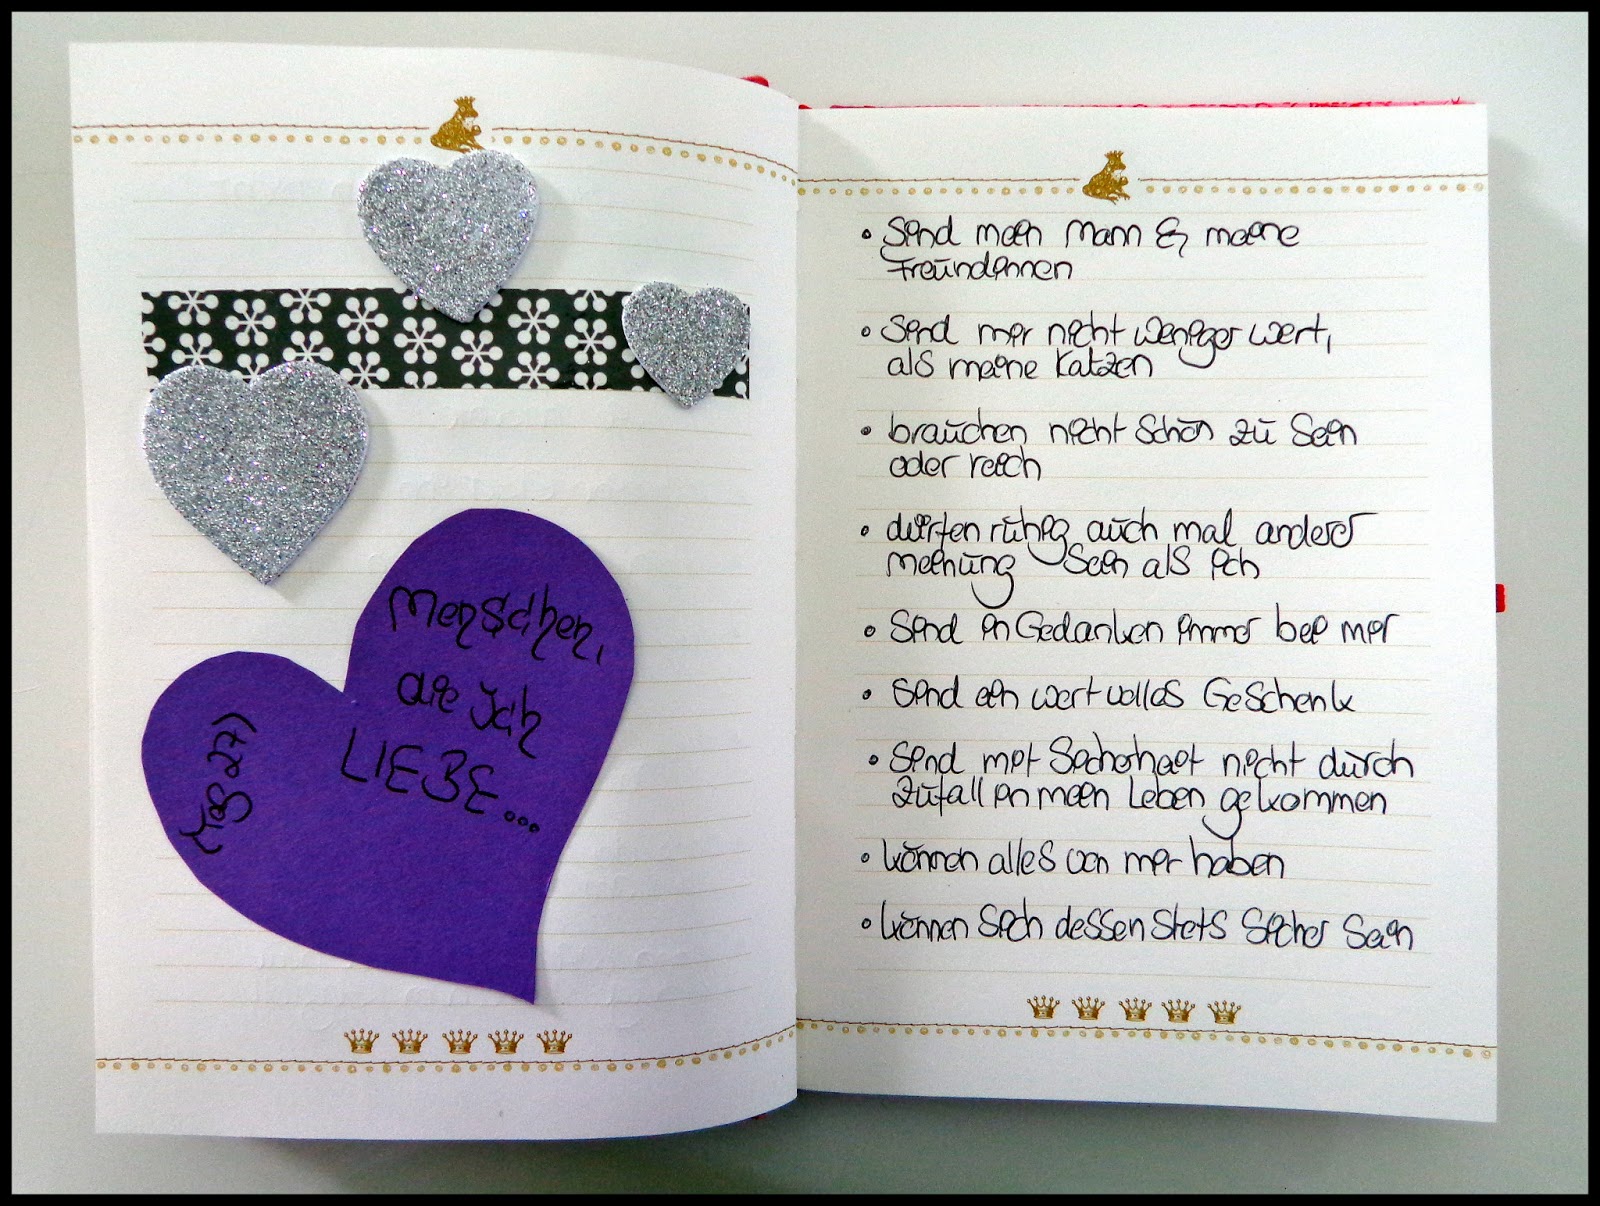 Menschen,
die Ich
LIEBE...
(Tag 27)
• Sind mein Mann & meine
Freundinnen
• Sind mir nicht weniger wert,
als meine Katzen
• brauchen nicht Schön zu Sein
oder reich
• dürfen ruhig auch mal anderer
Meinung Sein als ich
• Sind in Gedanken immer bei mir
• Sind ein wertvolles Geschenk
• Sind mit Sicherheit nicht durch
Zufall in mein Leben gekommen
• können alles von mir haben
• können Sich dessen Stets Sicher Sein